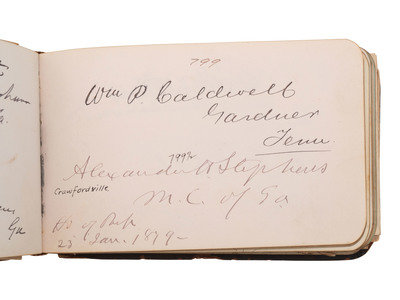 799
Wm P. Caldwell
Gardner
Tenn.
799½
Alexander H Stephens
Crawfordville
M. C. of Ga
Ho of Reps
25 Jan. 1879-
Ga